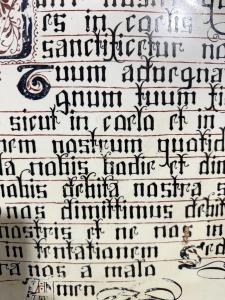 es in coelis
sanctificetur no
Tuum aduegna
gnum tuum fi
sicut in caelo et in
nem nostrum quotid
da nobis hodie et dim
nobis debita nostra s
nos dimittimus debit
nostris et ne nos in
in tentationem Sed
ra nos a malo
Amen